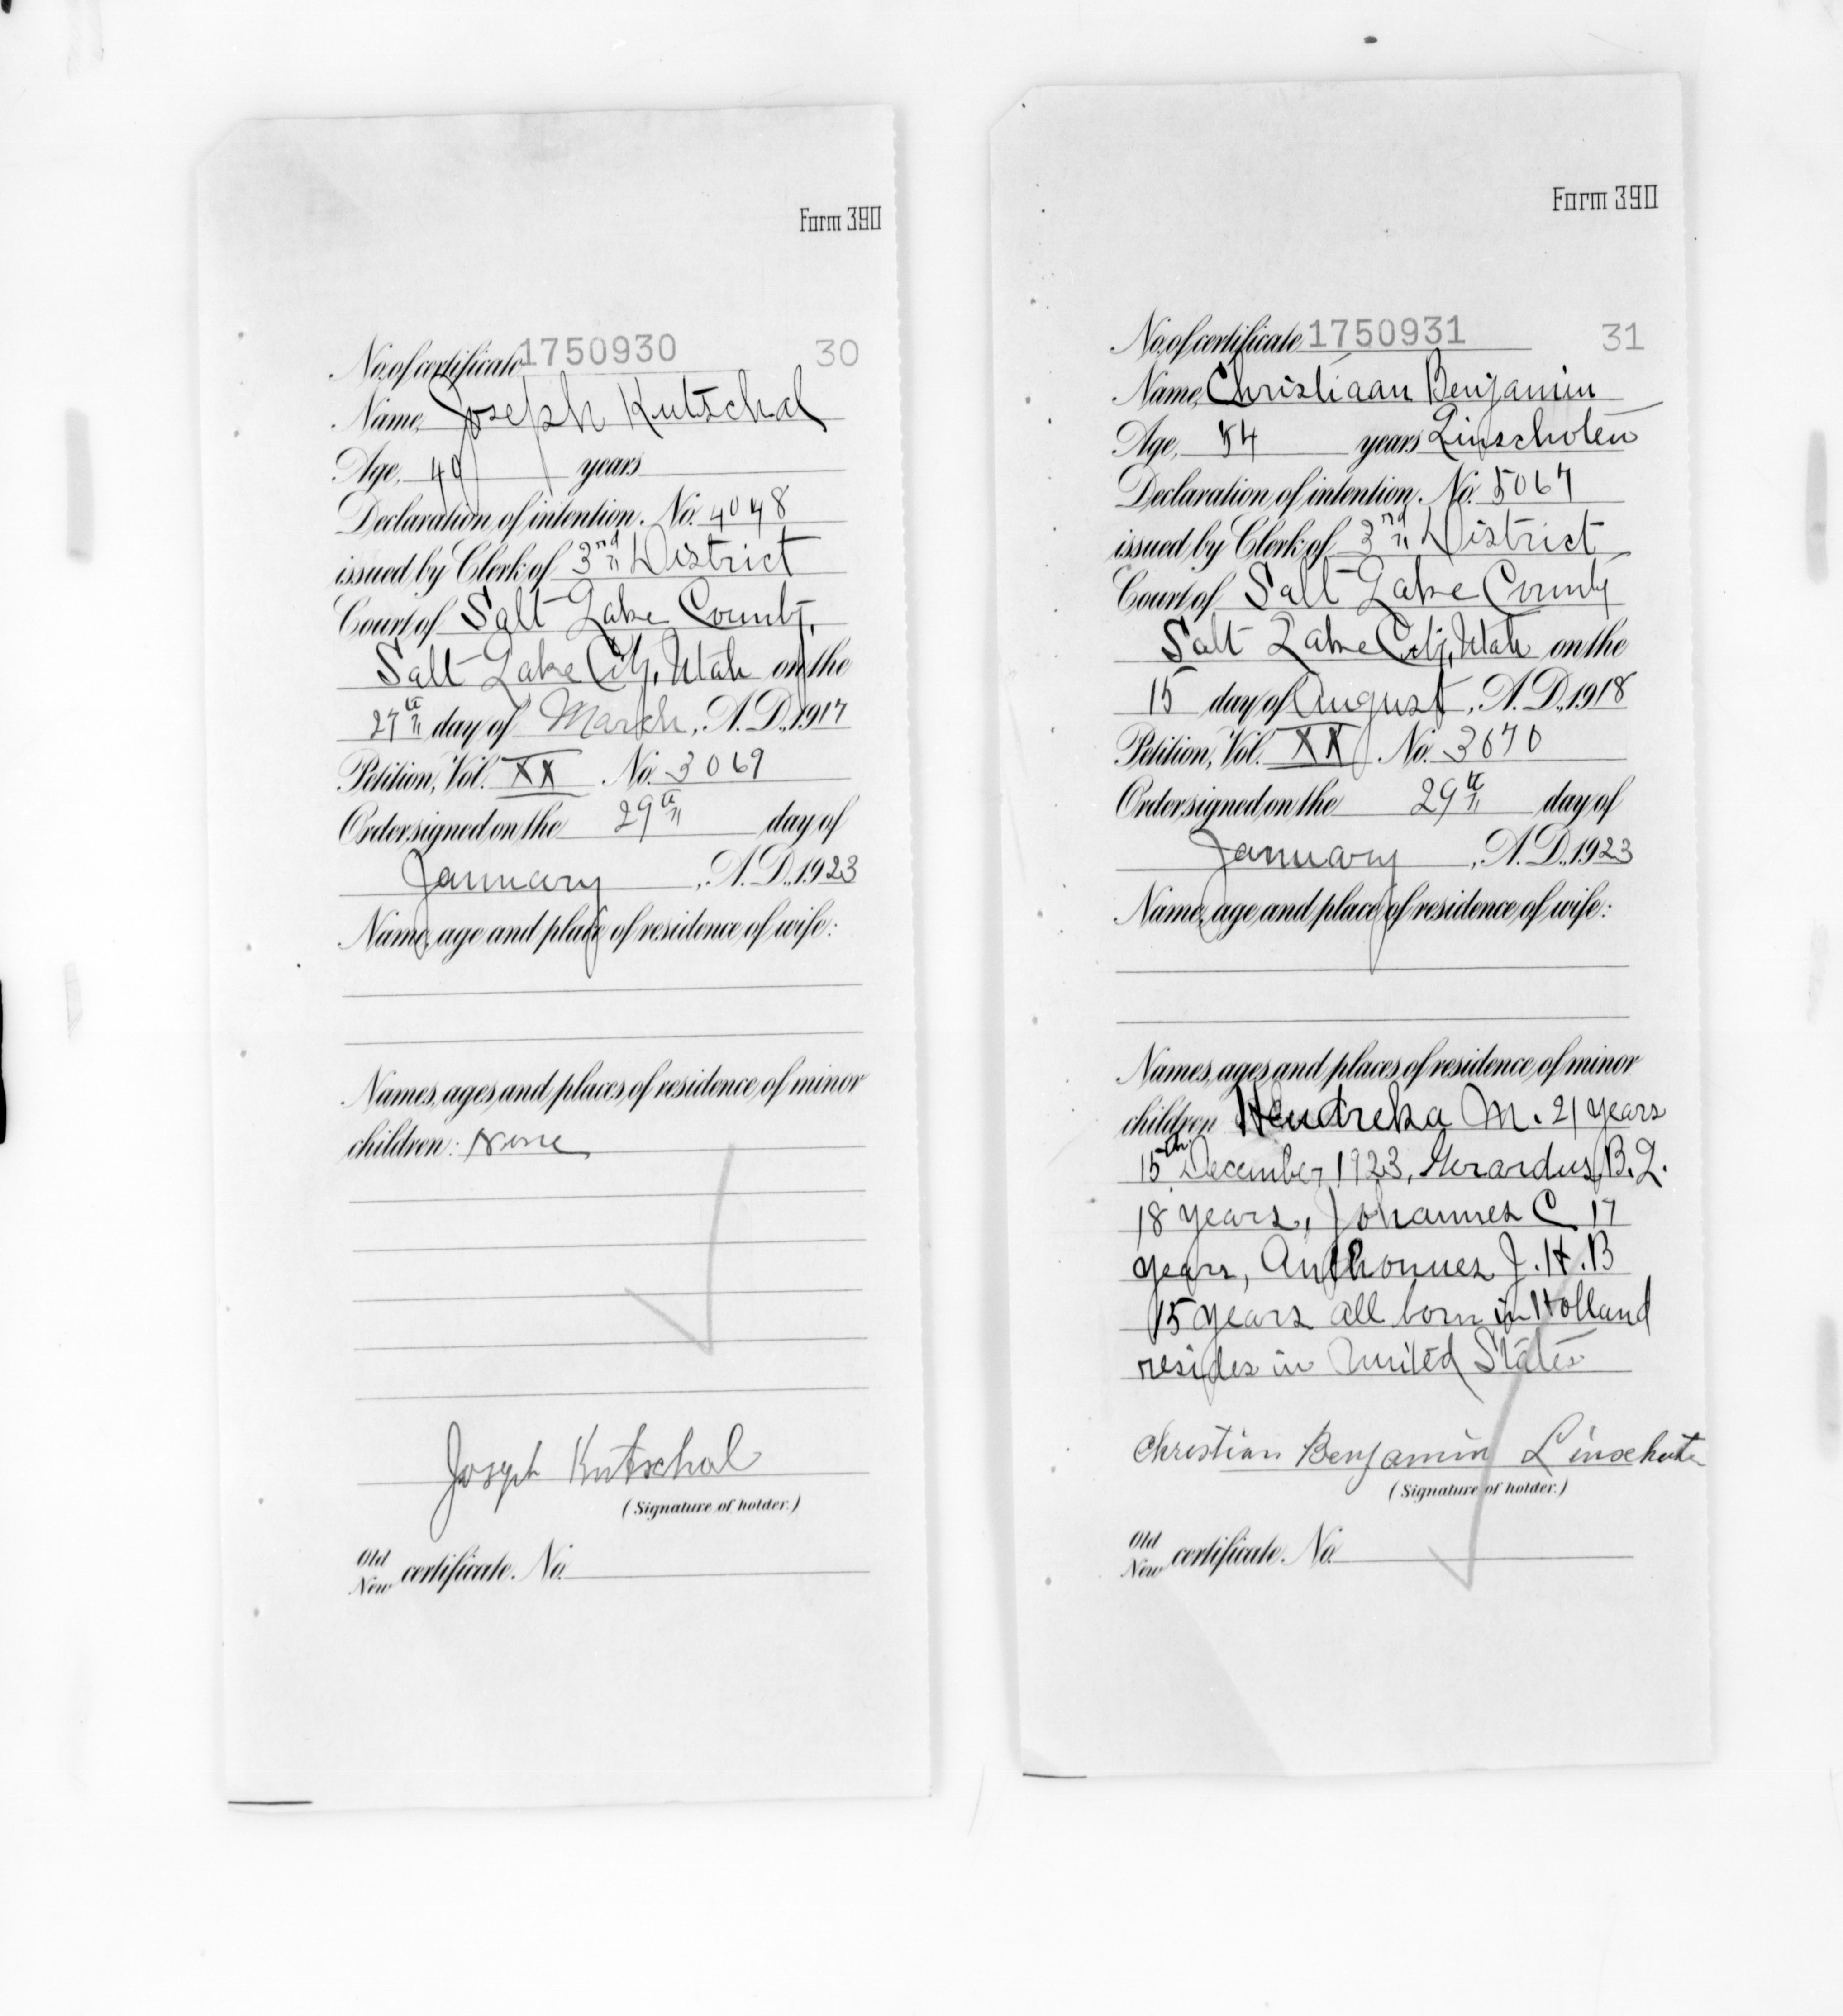 Form 390
No. of certificate 1750930 30
Name, Joseph Kutschal
Age, 49 years
Declaration of intention, No. 4048
issued by Clerk of 3rd District
Court of Salt Lake County,
Salt Lake City, Utah on the
27th day of March, A.D., 1917
Petition, Vol. XX No. 3069
Order signed on the 29th day of
January, A.D., 1923
Name, age and place of residence of wife:
Names, ages and places of residence of minor
children: None
Joseph Kutschal
(Signature of holder.)
Old
New certificate. No.
Form 390
No. of certificate 1750931 31
Name, Christiaan Benjamin
Age, 54 years Linschoten
Declaration of intention, No. 5067
issued by Clerk of 3rd District
Court of Salt Lake County
Salt Lake City, Utah on the
15 day of August, A.D., 1918
Petition, Vol. XX No. 3070
Order signed on the 29th day of
January, A.D., 1923
Name, age and place of residence of wife:
Names, ages and places of residence of minor
children Hendreka M. 21 years
15th December 1923, Gerardus B.L.
18 years, Johannes C 17
years, Anthonnes J.H.B
15 years all born in Holland
resides in United States
Christian Benjamin Linschoten
(Signature of holder.)
Old
New certificate. No.